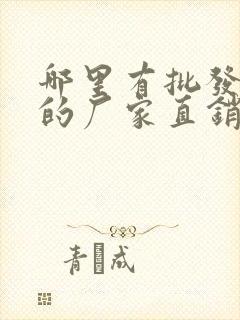 哪里有批發
的厂家直銷
青 成